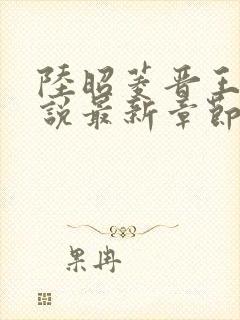 陸昭菱晋王
說最新章節
果冉